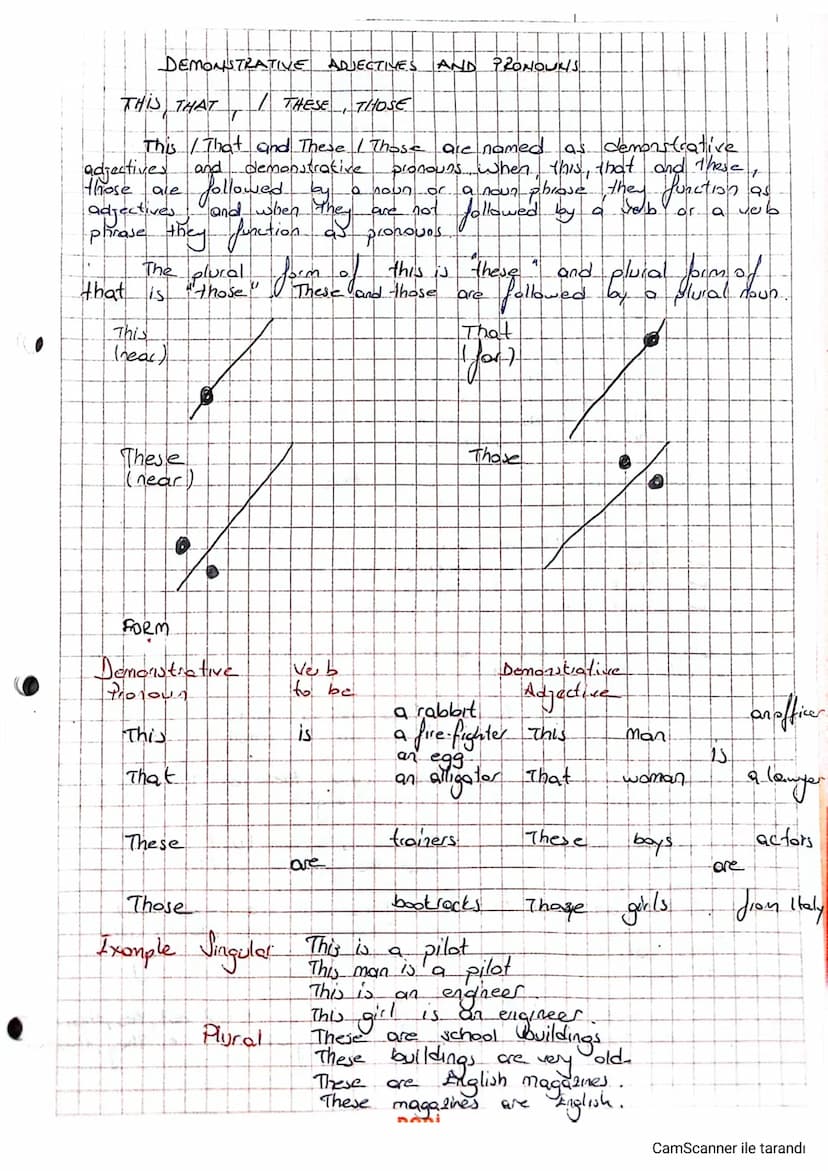 DEMONSTRATIVE ADJECTIVES AND PRONOUNS
THIS, THAT, / THESE, THOSE
This / That and These / Those are named as demonstrative
adjectives and demonstrative pronouns. when, this, that and these,
those are followed by a noun or a noun phrase, they function as
adjectives, and when they are not followed by a verb or a verb
phrase they function as pronouos.
The plural form of this is "these" and plural form of
that is "those" These and those are followed by a plural noun.
This
(near)
That
(far)
These
(near)
Those
FORM
Demonstrative Pronoun
Verb to be
Demonstrative Adjective
a rabbit
an officer
This is a fire-fighter This man
an egg is
That an alligator That woman a lawyer
These trainers These boys actors
are are
Those bookracks Those girls from Italy
Example Singular This is a pilot
This man is a pilot
This is an engineer.
This girl is an engineer.
Plural These are school buildings
These buildings are very old.
These are English magazines.
These magazines are English.
CamScanner ile tarandı